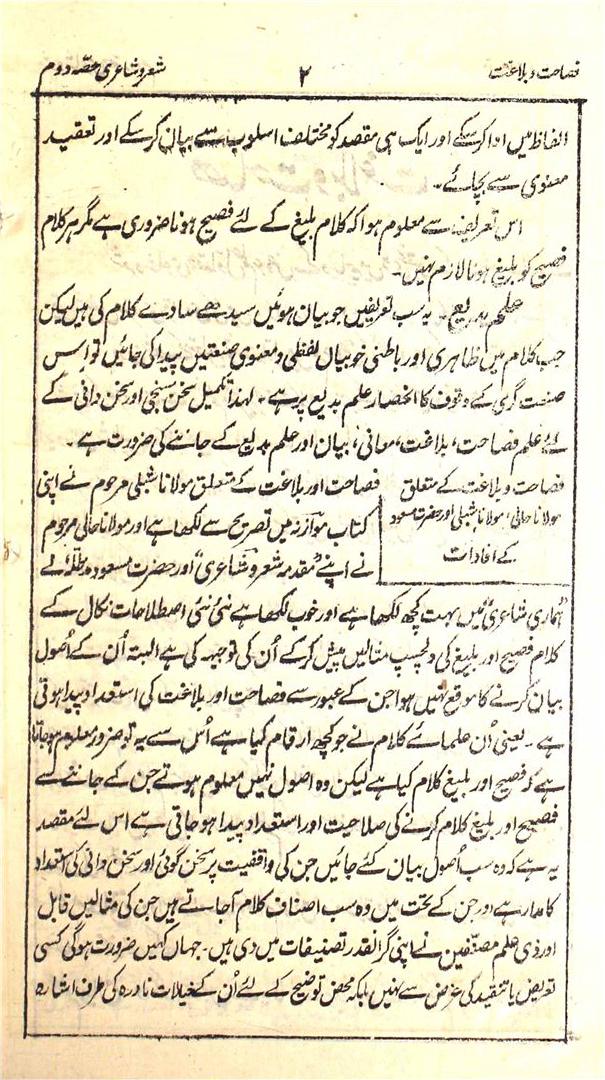 فصاحت و بلاغت
۲
شعر و شاعری حصّہ دوم
الفاظ میں ادا کرسکے اور ایک ہی مقصد کو مختلف اسلوب سے بیان کرسکے اور تعقید
معنوی سے بچائے۔
اس تعریف سے معلوم ہوا کہ کلام بلیغ کے لئے فصیح ہونا ضروری ہے مگر ہر کلام
فصیح کو بلیغ ہونا لازم نہیں۔
علم بدیع۔ یہ سب تعریفیں جو بیان ہوئیں سیدھے سادے کلام کی ہیں لیکن
جب کلام میں ظاہری اور باطنی خوبیاں لفظی و معنوی صنعتیں پیدا کی جائیں تو اِس
صنعت گری کے وقوف کا انحصار علم بدیع پر ہے۔ لہذا تکمیل سخن سنجی اور سخن دانی کے
لئے علم فصاحت، بلاغت، معانی، بیان اور علم بدیع کے جاننے کی ضرورت ہے۔
فصاحت و بلاغت کے متعلق
مولانا حالی، مولانا شبلی اور حضرت مسعود
کے افادات
فصاحت اور بلاغت کے متعلق مولانا شبلی مرحوم نے اپنی
کتاب موازنہ میں تصریح سے لکھا ہے اور مولانا حالی مرحوم
نے اپنے "مقدمہ شعر و شاعری" اور حضرت مسعود مدظلہٗ نے
"ہماری شاعری" میں بہت کچھ لکھا ہے اور خوب لکھا ہے نئی نئی اصطلاحات نکال کے
کلام فصیح اور بلیغ کی دلچسپ مثالیں پیش کرکے اُن کی توجیہ کی ہے البتہ اُن کے اُصول
بیان کرنے کا موقع نہیں ہوا جن کے عبور سے فصاحت اور بلاغت کی استعداد پیدا ہوتی
ہے۔ یعنی اُن علمائے کلام نے جو کچھ ارقام کیا ہے اُس سے یہ تو ضرور معلوم ہو جاتا
ہے کہ فصیح اور بلیغ کلام کیا ہے لیکن وہ اصول نہیں معلوم ہوتے جن کے جاننے سے
فصیح اور بلیغ کلام کرنے کی صلاحیت اور استعداد پیدا ہو جاتی ہے اس لئے مقصد
یہ ہے کہ وہ سب اُصول بیان کئے جائیں جن کی واقفیت پر سخن گوئی اور سخن دانی کی استعداد
کا مدار ہے اور جن کے تحت میں وہ سب اصناف کلام آجاتے ہیں جن کی مثالیں قابل
اور ذی علم مصنّفین نے اپنی گرانقدر تصنیفات میں دی ہیں۔ جہاں کہیں ضرورت ہوگی کسی
تعریض یا تنقید کی غرض سے نہیں بلکہ محض توضیح کے لئے اُن کے خیالات نادرہ کی طرف اشارہ